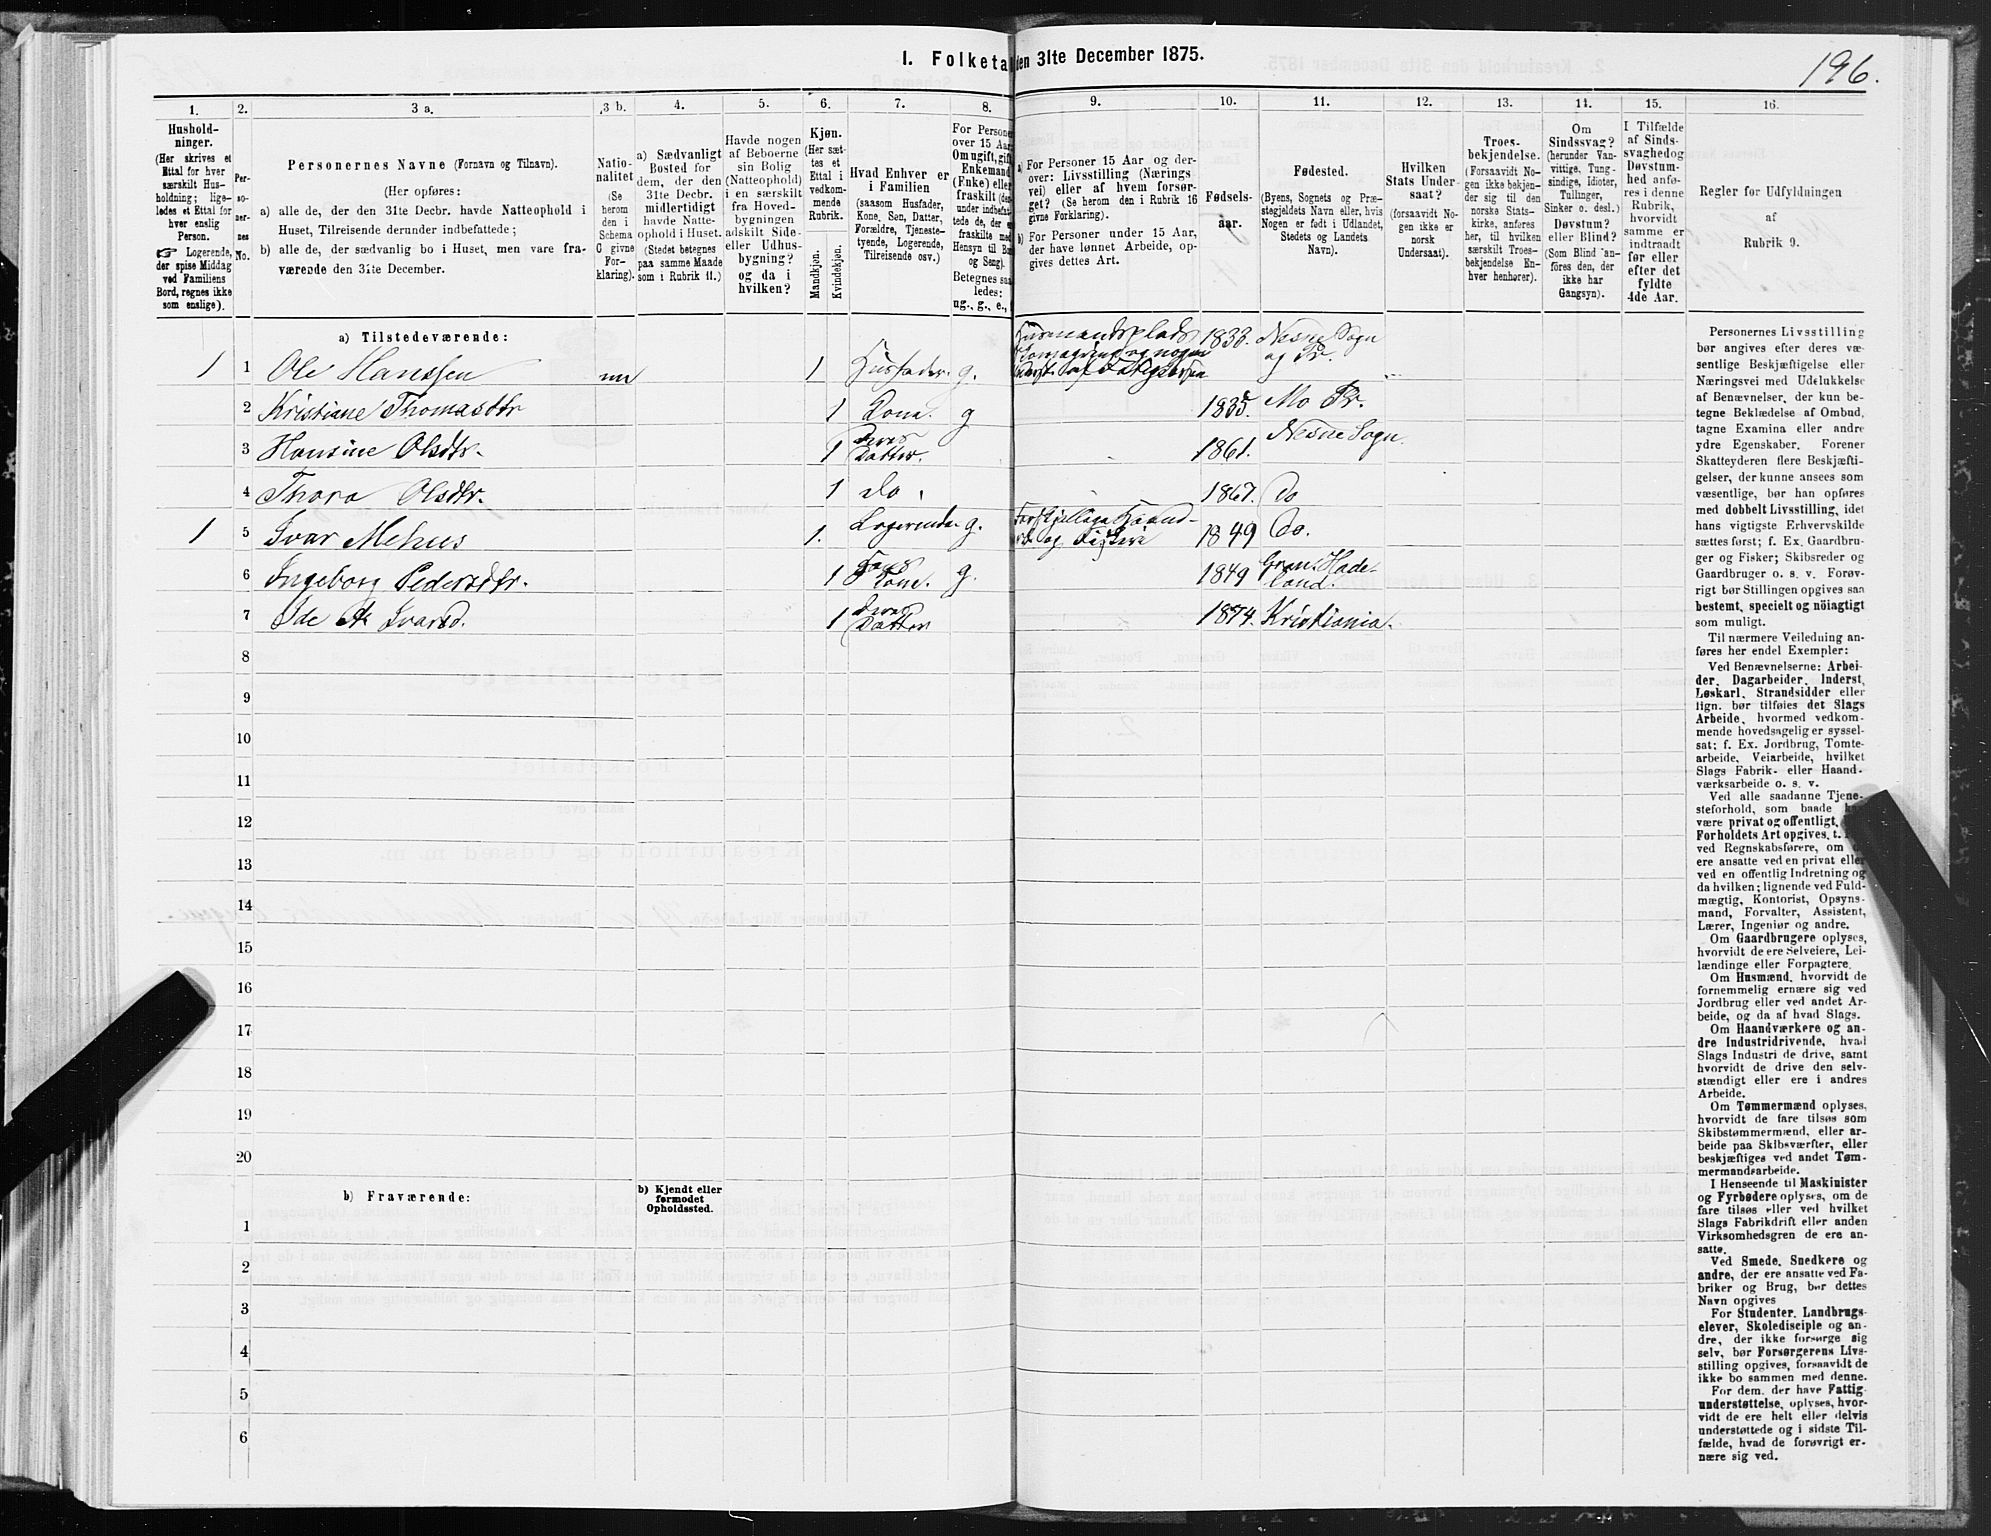 1. Folketa den 31te December 1875.
196.
1.
Hushold-
ninger.
(Her skrives et
Ettal for hver
særskilt Hus-
holdning; lige-
ledes et Ettal for
hver enslig
Person.
☞ Logerende,
der spise Middag
ved Familiens
Bord, regnes ikke
som enslige).
2.
Per-
so-
ner-
nes
No.
3 a.
Personernes Navne (Fornavn og Tilnavn).
(Her opføres:
a) alle de, der den 31te Decbr. havde Natteophold i
Huset, Tilreisende derunder indbefattede;
b) alle de, der sædvanlig bo i Huset, men vare fra-
værende den 31te December.
3 b.
Natio-
nalitet
(Se
herom
den i
Schema
C givne
For-
klaring).
4.
a) Sædvanligt
Bosted for
dem, der den
31te Decbr.
midlertidigt
havde Natte-
ophold i Huset.
(Stedet betegnes
paa samme Maade
som i Rubrik 11.)
5.
Havde nogen
af Beboerne
sin Bolig
(Natteophold)
i en særskilt
fra Hoved-
bygningen
adskilt Side-
eller Udhus-
bygning?
og da i
hvilken?
6.
Kjøn.
(Her sæt-
tes et
Ettal i
vedkom-
mende
Rubrik.
Mandkjøn.
Kvindekjøn.
7.
Hvad Enhver er
i Familien
(saasom Husfader,
Kone, Søn, Datter,
Forældre, Tjeneste-
tyende, Logerende,
Tilreisende osv.)
8.
For Persone
over 15 Aar
Om ugift, gift
Enkemand
(Enke) elle
fraskilt (der
under indbefat-
tede de, der er
fraskilte med
Hensyn til Bo
og Seng).
Betegnes saa
ledes:
ug., g., e.,
9.
a) For Personer 15 Aar og der-
over: Livsstilling (Nærings
vei) eller af hvem forsør-
get? (Se herom den i Rubrik 16
givne Forklaring).
b) For Personer under 15 Aar,
der have lønnet Arbeide, op-
gives dettes Art.
10.
Fødsels-
aar.
11.
Fødested.
(Byens, Sognets og Præ-
stegjeldets Navn eller, hvis
Nogen er født i Udlandet,
Stedets og Landets
Navn).
12.
Hvilken
Stats Under-
saat?
(forsaavidt No-
gen ikke er
norsk
Undersaat).
13.
Troes-
bekjendelse.
(Forsaavidt No-
gen ikke bekjen-
der sig til den
norske Stats-
kirke, anføres
her, til hvilken
særskilt Troes-
bekjendelse En-
hver henhører).
14.
Om
Sindssvag?
(herunder Van-
vittige, Tung-
sindige, Idioter,
Tullinger,
Sinker o. desl.)
Døvstum?
eller Blind?
(Som Blind an-
føres den, der
ikke har
Gangsyn).
15.
I Tilfælde
af Sinds-
svaghed og
Døvstum-
hed anfø-
res i denne
Rubrik,
hvorvidt
samme er
indtraadt
før eller
efter det
fyldte
4de Aar.
16.
Regler for Udfyldningen
af
Rubrik 9.
a) Tilstedeværende:
1 1 Ole Hanssen nn 1 Husfader. g. Husmandsplads 1833. Nesne Sogn
og Pr.
2 Kristiane Thomasdtr 1 Kone. g 1835. Mo Pr.
3 Hansine Olsdtr. 1 Deres
Datter. 1861. Nesne Sogn.
4 Thora Olsdtr. 1 Do 1867. Do
1 5 Ivar Mehus 1. Logerende g. 1849 Do.
6 Ingeborg Pedersdtr. 1 Hans
Kone. g. 1849 Gran. Hade-
land.
7 Ivarsd. 1 Deres
Datter 1874. Kristiania.
8
9
10
11
12
13
14
15
16
17
18
19
20
b) Fraværende:
b) Kjendt eller
formodet
Opholdssted.
1
2
3
4
5
6
Personernes Livsstilling
bør angives efter deres væ-
sentlige Beskjæftigelse eller
Næringsvei med Udelukkelse
af Benævnelser, der kun be-
tegne Beklædelse af Ombud,
tagne Examina eller andre
ydre Egenskaber. Forener
Skatteyderen flere Beskjæfti-
gelser, der kunne ansees som
væsentlige, bør han opføres
med dobbelt Livsstilling, idet
hans vigtigste Erhvervskilde
sættes først; f. Ex. Gaardbru-
ger og Fisker; Skibsreder og
Gaardbruger o. s. v. Forøv-
rigt bør Stillingen opgives saa
bestemt, specielt og nöiagtigt
som muligt.
Til nærmere Veiledning an-
føres her endel Exempler:
Ved Benævnelserne: Arbei-
der, Dagarbeider, Inderst,
Løskarl, Strandsidder eller
lign. bør tilføies det Slags
Arbeide, hvormed vedkom-
mende hovedsagelig er syssel-
sat; f. Ex. Jordbrug, Tomte-
arbeide, Veiarbeide, hvilket
Slags Fabrik- eller Haand-
værksarbeide o. s. v.
Ved alle saadanne Tjene-
steforhold, som baade
være privat og offentligt,
Forholdets Art opgives, t.
ved Regnskabsførere, om
ere ansatte ved en privat eller
ved en offentlig Indretning og
da hvilken; lignende ved Fuld-
mægtig, Kontorist, Opsyns-
mand, Forvalter, Assistent,
Lærer, Ingeniør og andre.
Om Gaardbrugere oplyses,
hvorvidt de ere Selveiere, Lei-
lændinge eller Forpagtere.
Om Husmænd, hvorvidt de
fornemmelig ernære sig ved
Jordbrug eller ved andet Ar-
beide, og da af hvad Slags.
Om Haandværkere og an-
dre Industridrivende, hvad
Slags Industri de drive, samt
hvorvidt de drive den selv-
stændigt eller ere i andres
Arbeide.
Om Tømmermænd oplyses,
hvorvidt de fare tilsøs som
Skibstømmermænd, eller ar-
beide paa Skibsværfter, eller
beskjæftiges ved andet Tøm-
mermandsarbeide.
I Henseende til Maskinister
og Fyrbødere oplyses, om de
fare tilsøs eller ved hvilket
Slags Fabrikdrift eller anden
Virksomhedsgren de ere an-
satte.
Ved Smede, Snedkere og
andre, der ere ansatte ved Fa-
briker og Brug, bør dettes
Navn opgives
For Studenter, Landbrugs-
elever, Skoledisciple og an-
dre, der ikke forsørge sig
selv, bør Forsørgerens Livs-
stilling opgives, forsaavidt de
ikke bo sammen med denne.
For dem, der have Fattig-
understøttelse, oplyses, hvor-
vidt de ere helt eller delvis
understøttede og i sidste Til-
fælde, hvad de forøvrigt er-
nære sig ved.